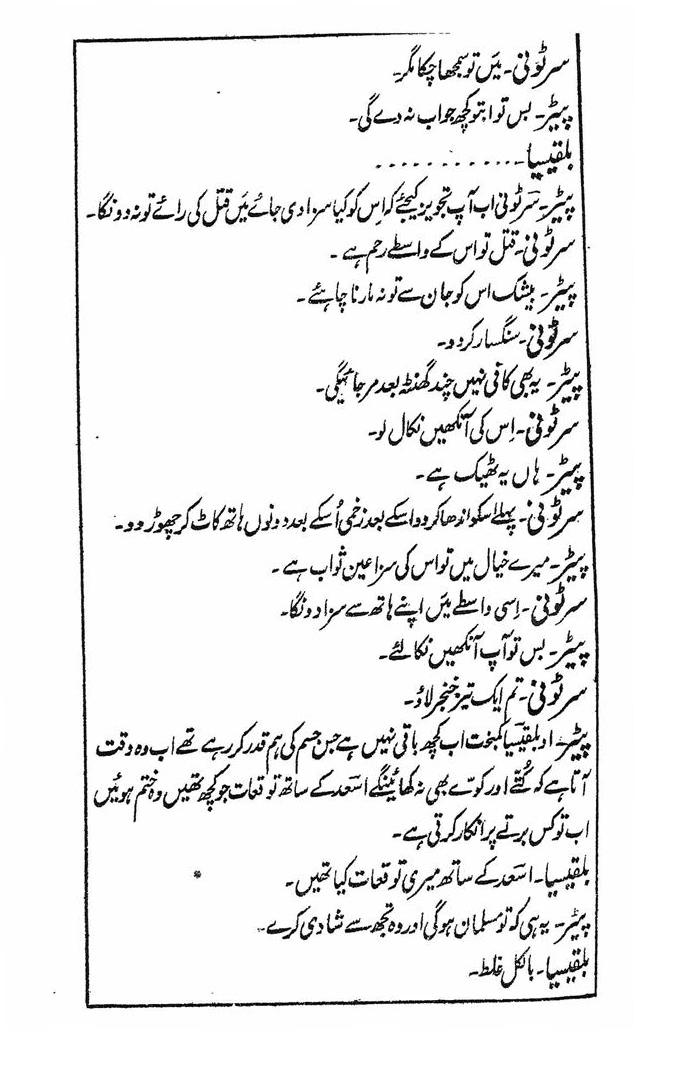 سرٹونی۔ میں تو سمجھا چکا مگر۔
پیٹر۔ بس تو ابتو کچھ جواب نہ دے گی۔
بلقیسیا۔ . . . . . . . . . . .
پیٹر۔ سرٹونی اب آپ تجویز کیجئے کہ اس کو کیا سزا دی جائے میں قتل کی رائے تو نہ دونگا۔
سرٹونی۔ قتل تو اس کے واسطے رحم ہے ۔
پیٹر۔ بیشک اس کو جان سے تو نہ مارنا چاہئے ۔
سرٹونی۔ سنگسار کر دو۔
پیٹر۔ یہ بھی کافی نہیں چند گھنٹہ بعد مر جائیگی۔
سرٹونی۔ اِس کی آنکھیں نکال لو۔
پیٹر۔ ہاں یہ ٹھیک ہے ۔
سرٹونی۔ پہلے اسکو اندھا کر دو اسکے بعد زخمی اُسکے بعد دونوں ہاتھ کاٹ کر چھوڑ دو۔
پیٹر۔ میرے خیال میں تو اس کی سزا عین ثواب ہے ۔
سرٹونی۔ اِسی واسطے میں اپنے ہاتھ سے سزا دونگا۔
پیٹر۔ بس تو آپ آنکھیں نکالئے۔
سرٹونی۔ تم ایک تیز خنجر لاؤ۔
پیٹر۔ او بلقیسیا کمبخت اب کچھ باقی نہیں ہے جس جسم کی ہم قدر کر رہے تھے اب وہ وقت
آتا ہے کہ کُتّے اور کوّے بھی نہ کھائینگے اسعد کے ساتھ توقعات جو کچھ تھیں وہ ختم ہوئیں
اب تو کس برتے پر انکار کرتی ہے۔
بلقیسیا۔ اسعد کے ساتھ میری توقعات کیا تھیں۔
پیٹر۔ یہ ہی کہ تو مسلمان ہوگی اور وہ تجھ سے شادی کرے۔
بلقیسیا۔ بالکل غلط۔